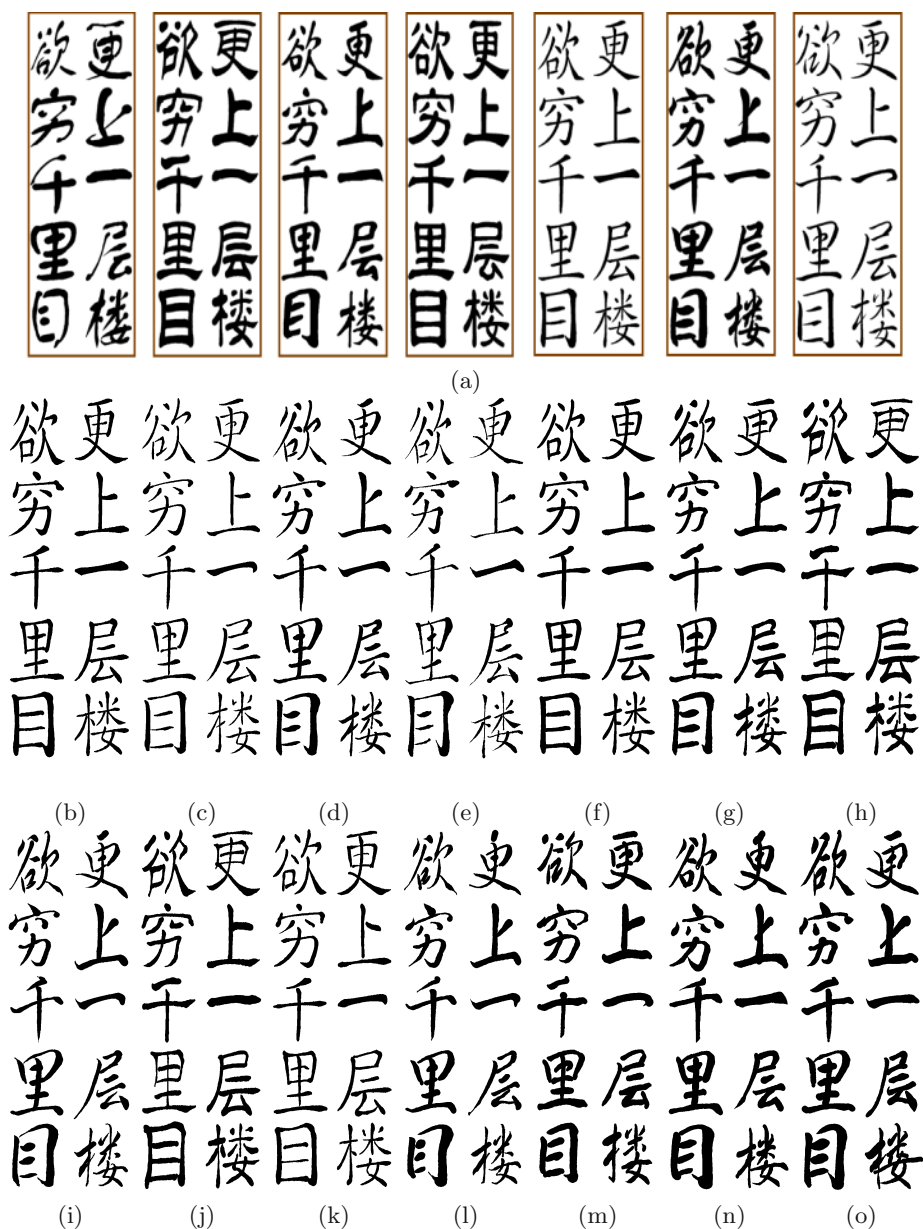 欲穷千里目
更上一层楼
欲穷千里目
更上一层楼
欲穷千里目
更上一层楼
欲穷千里目
更上一层楼
欲穷千里目
更上一层楼
欲穷千里目
更上一层楼
欲穷千里目
更上一层楼
(a)
欲穷千里目
更上一层楼
(b)
欲穷千里目
更上一层楼
(c)
欲穷千里目
更上一层楼
(d)
欲穷千里目
更上一层楼
(e)
欲穷千里目
更上一层楼
(f)
欲穷千里目
更上一层楼
(g)
欲穷千里目
更上一层楼
(h)
欲穷千里目
更上一层楼
(i)
欲穷千里目
更上一层楼
(j)
欲穷千里目
更上一层楼
(k)
欲穷千里目
更上一层楼
(l)
欲穷千里目
更上一层楼
(m)
欲穷千里目
更上一层楼
(n)
欲穷千里目
更上一层楼
(o)